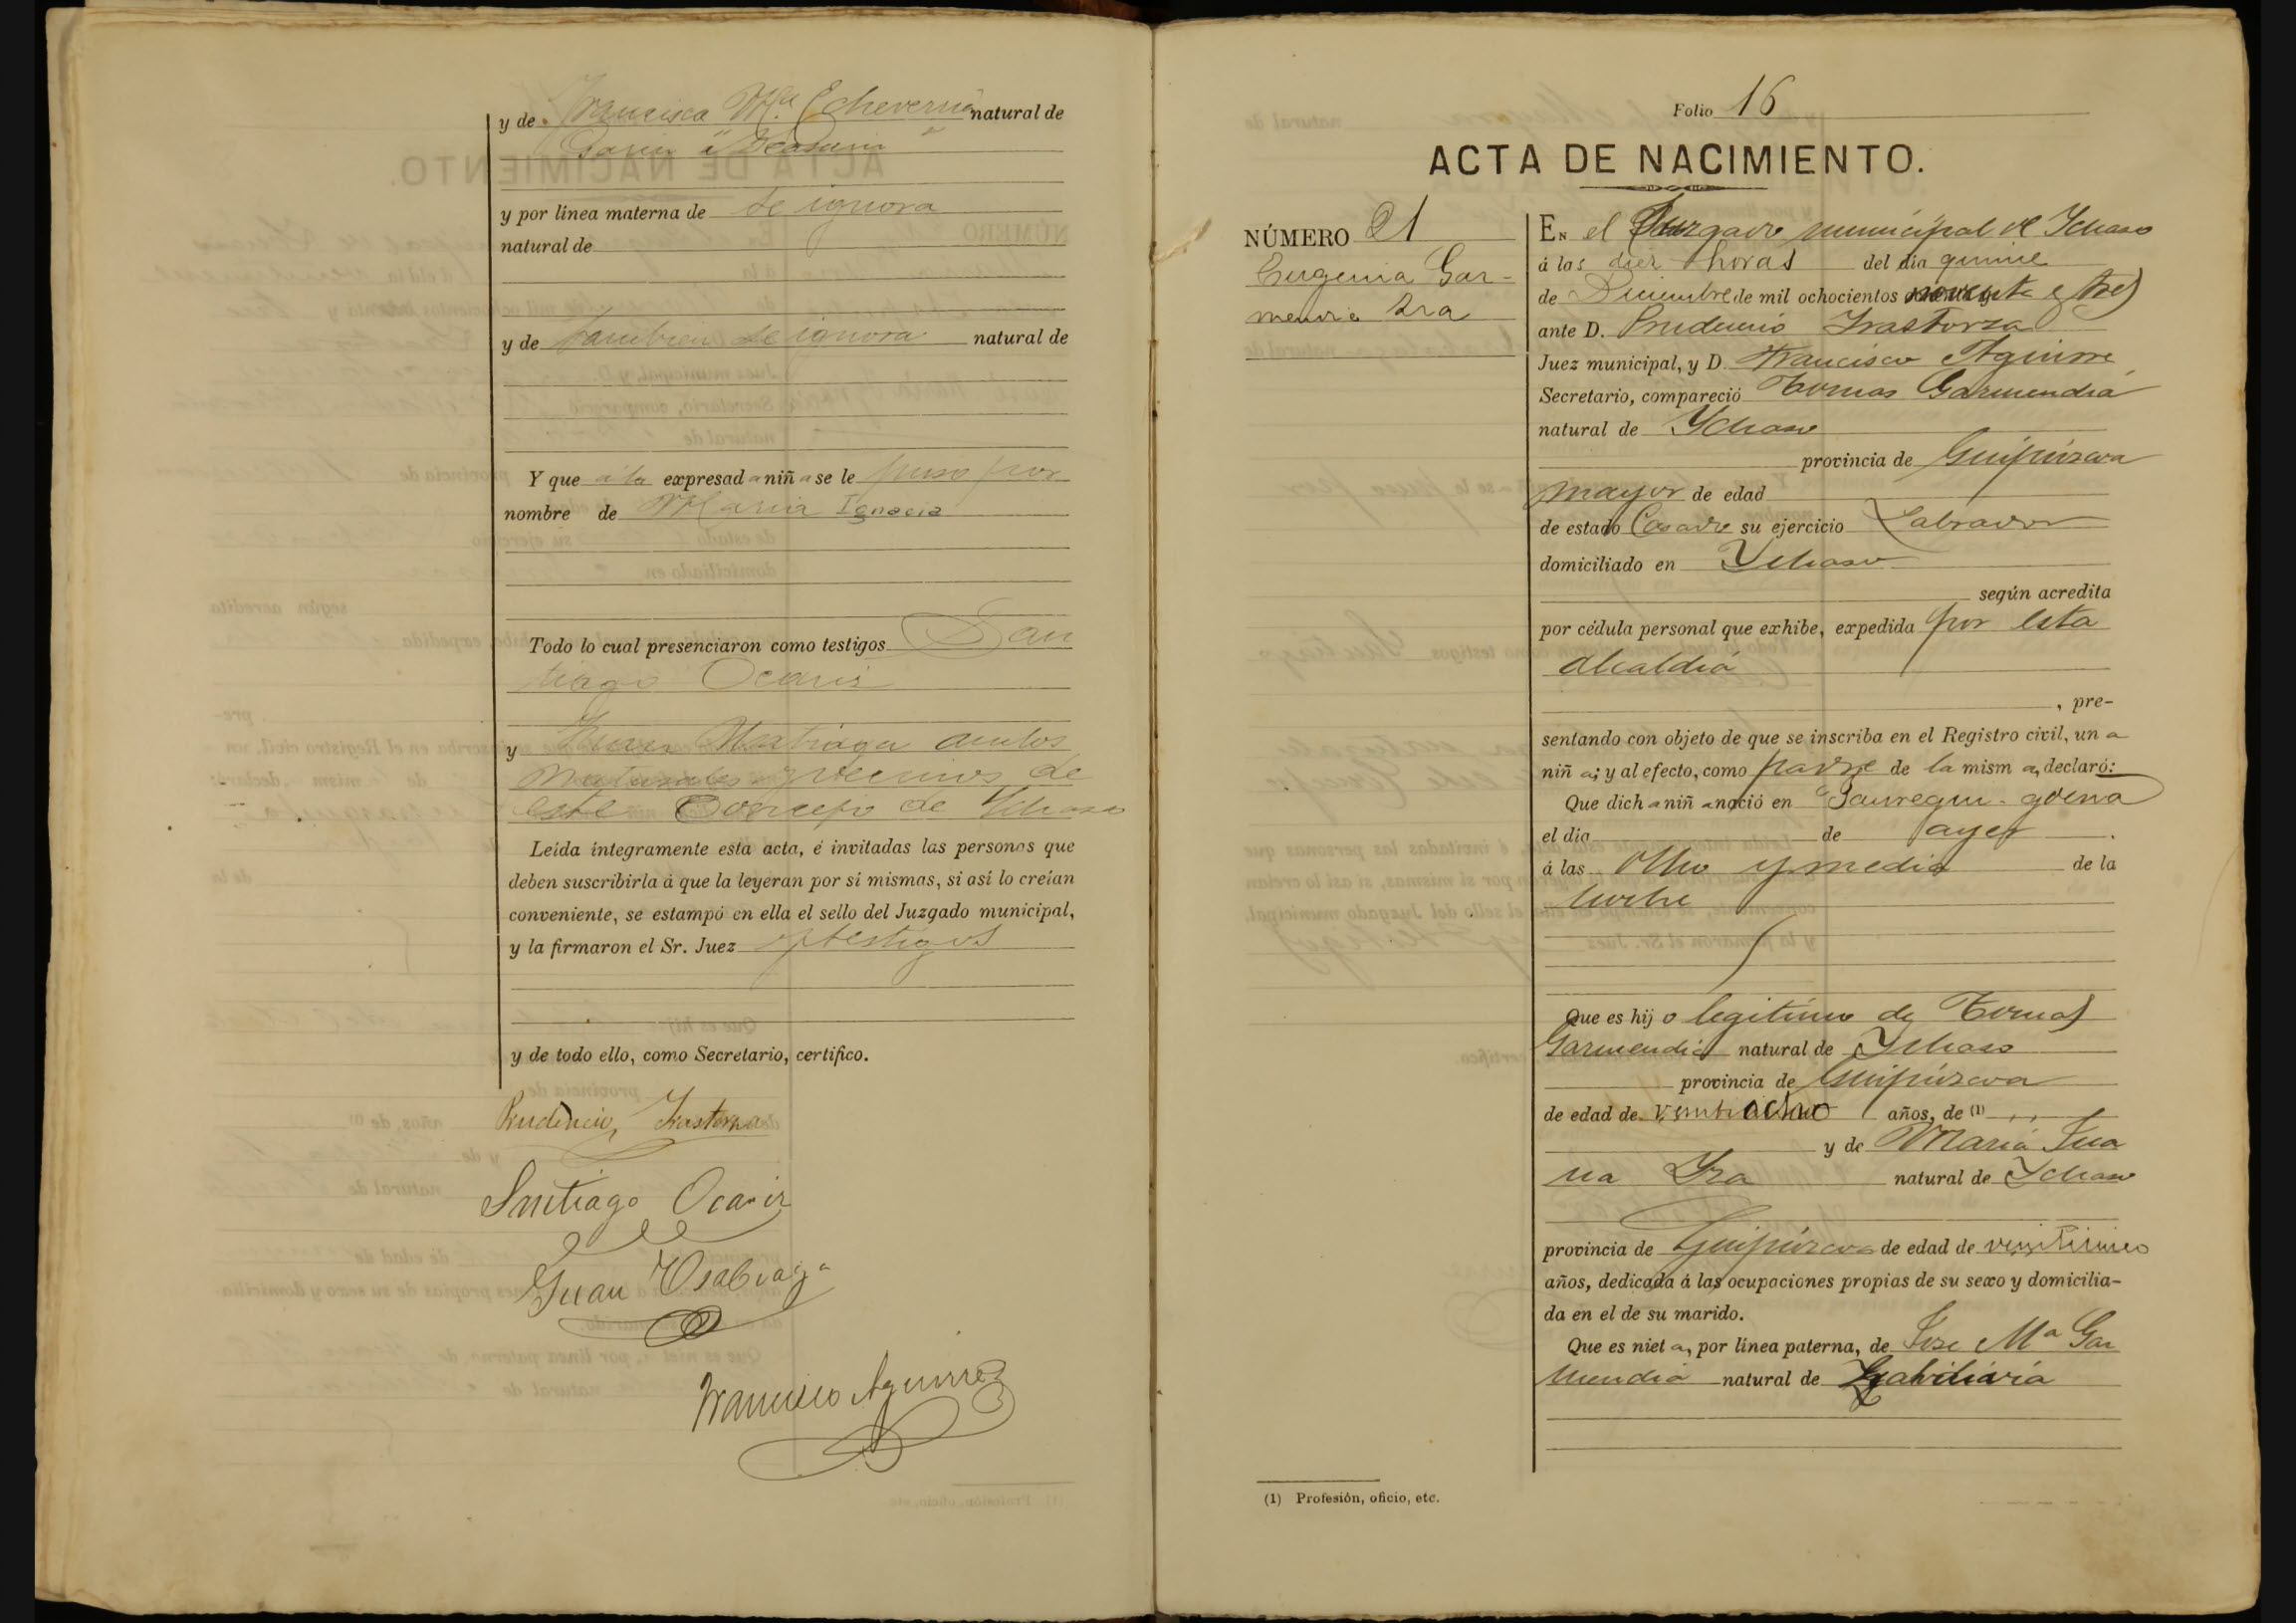 y de Francisca Mª. Echeverria natural de
y por línea materna de se ignora
natural de
y de tambien se ignora natural de
Y que á la expresad a niñ a se le puso por
nombre de Maria Ignacia
Todo lo cual presenciaron como testigos San
tiago Ocariz
y Juan Usabiaga ambos
naturales y vecinos de
este Concejo de Ychaso
Leída íntegramente esta acta, é invitadas las personas que
deben suscribirla á que la leyeran por sí mismas, si así lo creían
conveniente, se estampó en ella el sello del Juzgado municipal,
y la firmaron el Sr. Juez y testigos
y de todo ello, como Secretario, certifico.
Prudencio Yrastorza
Santiago Ocariz
Juan Usabiaga
Francisco Aguirre
Folio 16
ACTA DE NACIMIENTO.
NÚMERO 21
Eugenia Gar-
mendia Yra
EN el Juzgado municipal de Ychaso
á las diez horas del día quince
de Diciembre de mil ochocientos noventa y tres
ante D. Prudencio Yrastorza
Juez municipal, y D. Francisco Aguirre
Secretario, compareció Tomas Garmendia
natural de Ychaso
provincia de Guipúzcoa
mayor de edad
de estado Casado su ejercicio Labrador
domiciliado en Ychaso
según acredita
por cédula personal que exhibe, expedida por esta
alcaldia
, pre-
sentando con objeto de que se inscriba en el Registro civil, un a
niñ a; y al efecto, como padre de la mism a, declaró:
Que dich a niñ a nació en Jauregui-goena
el día de ayer
á las ocho y media de la
noche
Que es hij o legitimo de Tomas
Garmendia natural de Ychaso
provincia de Guipúzcoa
de edad de veintiocho años, de (1) ,,
y de Maria Jua
na Yra natural de Ychaso
provincia de Guipúzcoa de edad de veinticinco
años, dedicada á las ocupaciones propias de su sexo y domicilia-
da en el de su marido.
Que es niet a, por línea paterna, de Jose Mª Gar
mendia natural de Gabiria
(1) Profesión, oficio, etc.